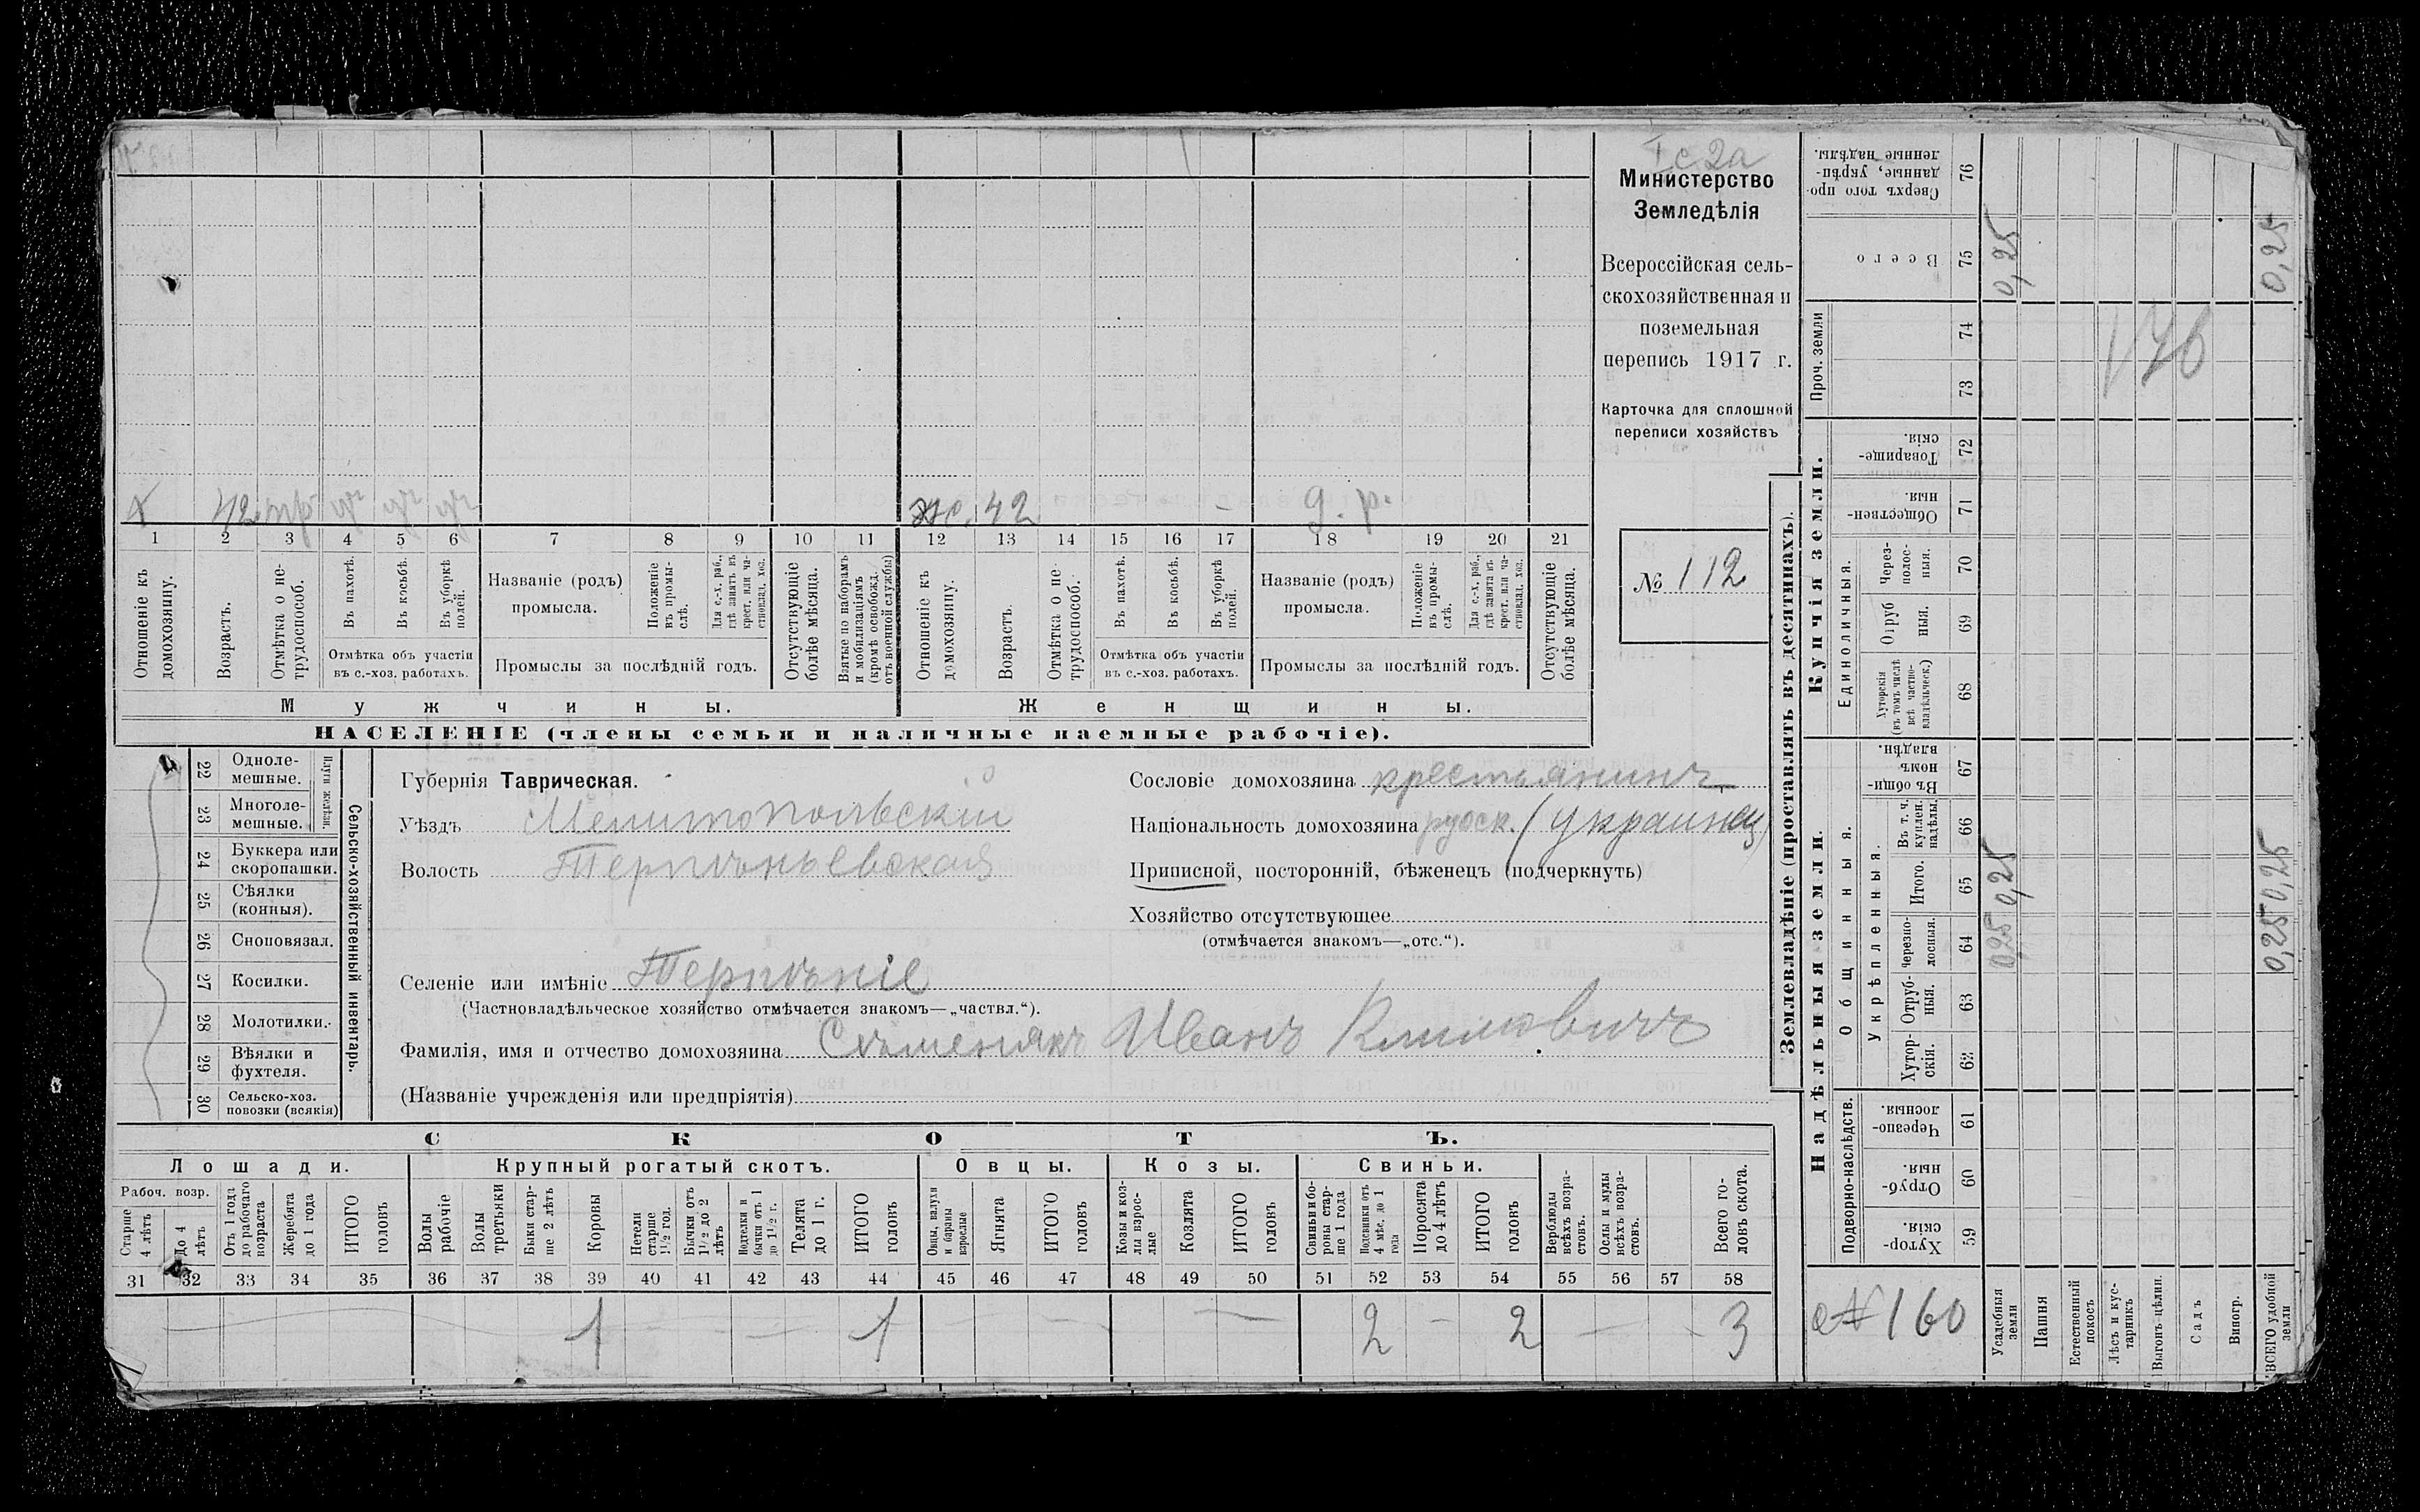 I с 2а
Министерство
Земледѣлія
Всероссійская сель-
скохозяйственная и
поземельная
перепись 1917 г.
Карточка для сплошной
переписи хозяйствъ
№ 112
х 42 тр
ж. 42 – д. р.
1 2 3 4 5 6 7 8 9 10 11 12 13 14 15 16 17 18 19 20 21
Отношеніе къ домохозяину.
Возрастъ.
Отмѣтка о не-трудоспособ.
Въ пахотѣ.
Въ косьбѣ.
Въ уборкѣ полей.
Отмѣтка объ участіи
въ с.-хоз. работахъ.
Названіе (родъ)
промысла.
Положеніе въ промы-слѣ.
Для с.-х. раб., гдѣ занятъ въ крест. или ча-стновлад. хоз.
Промыслы за послѣдній годъ.
Отсутствующіе болѣе мѣсяца.
Взятые по наборамъ и мобилизаціямъ (кромѣ освобожд. отъ военной службы)
Отношеніе къ домохозяину.
Возрастъ.
Отмѣтка о не-трудоспособ.
Въ пахотѣ.
Въ косьбѣ.
Въ уборкѣ полей.
Отмѣтка объ участіи
въ с.-хоз. работахъ.
Названіе (родъ)
промысла.
Положеніе въ промы-слѣ.
Для с.-х. раб., гдѣ занята въ крест. или ча-стновлад. хоз.
Промыслы за послѣдній годъ.
Отсутствующіе болѣе мѣсяца.
Мужчины.
Женщины.
НАСЕЛЕНІЕ (члены семьи и наличные наемные рабочіе).
Сельско-хозяйственный инвентарь.
Плуги желѣзн.
22 Одноле-мешные.
23 Многоле-мешные.
24 Буккера или скоропашки.
25 Сѣялки (конныя).
26 Сноповязал.
27 Косилки.
28 Молотилки.
29 Вѣялки и фухтеля.
30 Сельско-хоз. повозки (всякія)
Губернія Таврическая.
Уѣздъ Мелитопольскій
Волость Терпѣньевская
Селеніе или имѣніе Терпѣніе
(Частновладѣльческое хозяйство отмѣчается знакомъ—„частвл.“).
Фамилія, имя и отчество домохозяина Съменякъ Иванъ Климовичъ
(Названіе учрежденія или предпріятія)
Сословіе домохозяина крестьянинъ
Національность домохозяина русск. (украинец)
Приписной, посторонній, бѣженецъ (подчеркнуть)
Хозяйство отсутствующее
(отмѣчается знакомъ—„отс.“).
СКОТЪ.
Лошади.
Крупный рогатый скотъ.
Овцы.
Козы.
Свиньи.
Рабоч. возр.
Старше 4 лѣтъ
До 4 лѣтъ
Отъ 1 года до рабочаго возраста
Жеребята до 1 года
ИТОГО головъ
Волы рабочіе
Волы третьяки
Быки стар-ше 2 лѣтъ
Коровы
Нетели старше 1½ год.
Бычки отъ 1½ до 2 лѣтъ
Подтелки и бычки отъ 1 до 1½ г.
Телята до 1 г.
ИТОГО головъ
Овцы, валухи и бараны взрослые
Ягнята
ИТОГО головъ
Козы и коз-лы взрос-лые
Козлята
ИТОГО головъ
Свиньи и бо-ровы стар-ше 1 года
Подсвинки отъ 4 мѣс. до 1 года
Поросята до 4 лѣтъ
ИТОГО головъ
Верблюды всѣхъ возра-стовъ.
Ослы и мулы всѣхъ возра-стовъ.
Всего го-ловъ скота.
31 32 33 34 35 36 37 38 39 40 41 42 43 44 45 46 47 48 49 50 51 52 53 54 55 56 57 58
1 1 2 2 3
Землевладѣніе (проставлять въ десятинахъ).
Купчія земли.
Надѣльныя земли.
Сверхъ того про-данные, укрѣп-ленные надѣлы. 76
Всего 75
Проч. земли
74
73
Товарище-скія. 72
Обществен-ныя. 71
Единоличныя.
Через-полос-ныя. 70
Отруб ныя. 69
Хуторскія (въ томъ числѣ всѣ частно-владѣльческ.) 68
Въ общи-номъ владѣн. 67
Общинныя.
Укрѣпленныя.
Въ т. ч. куплен. надѣлы. 66
Итого. 65
Черезпо-лосныя. 64
Отруб-ныя. 63
Хутор-скія. 62
Подворно-наслѣдств.
Черезпо-лосныя. 61
Отруб-ныя. 60
Хутор-скія. 59
№ 160
Усадебныя земли
Пашня
Естественный покосъ
Лѣсъ и кус-тарникъ
Выгонъ цѣлин.
Садъ
Виногр.
ВСЕГО удобной земли
0,25
0,25
0,25
0,25
0,25
0,25
176